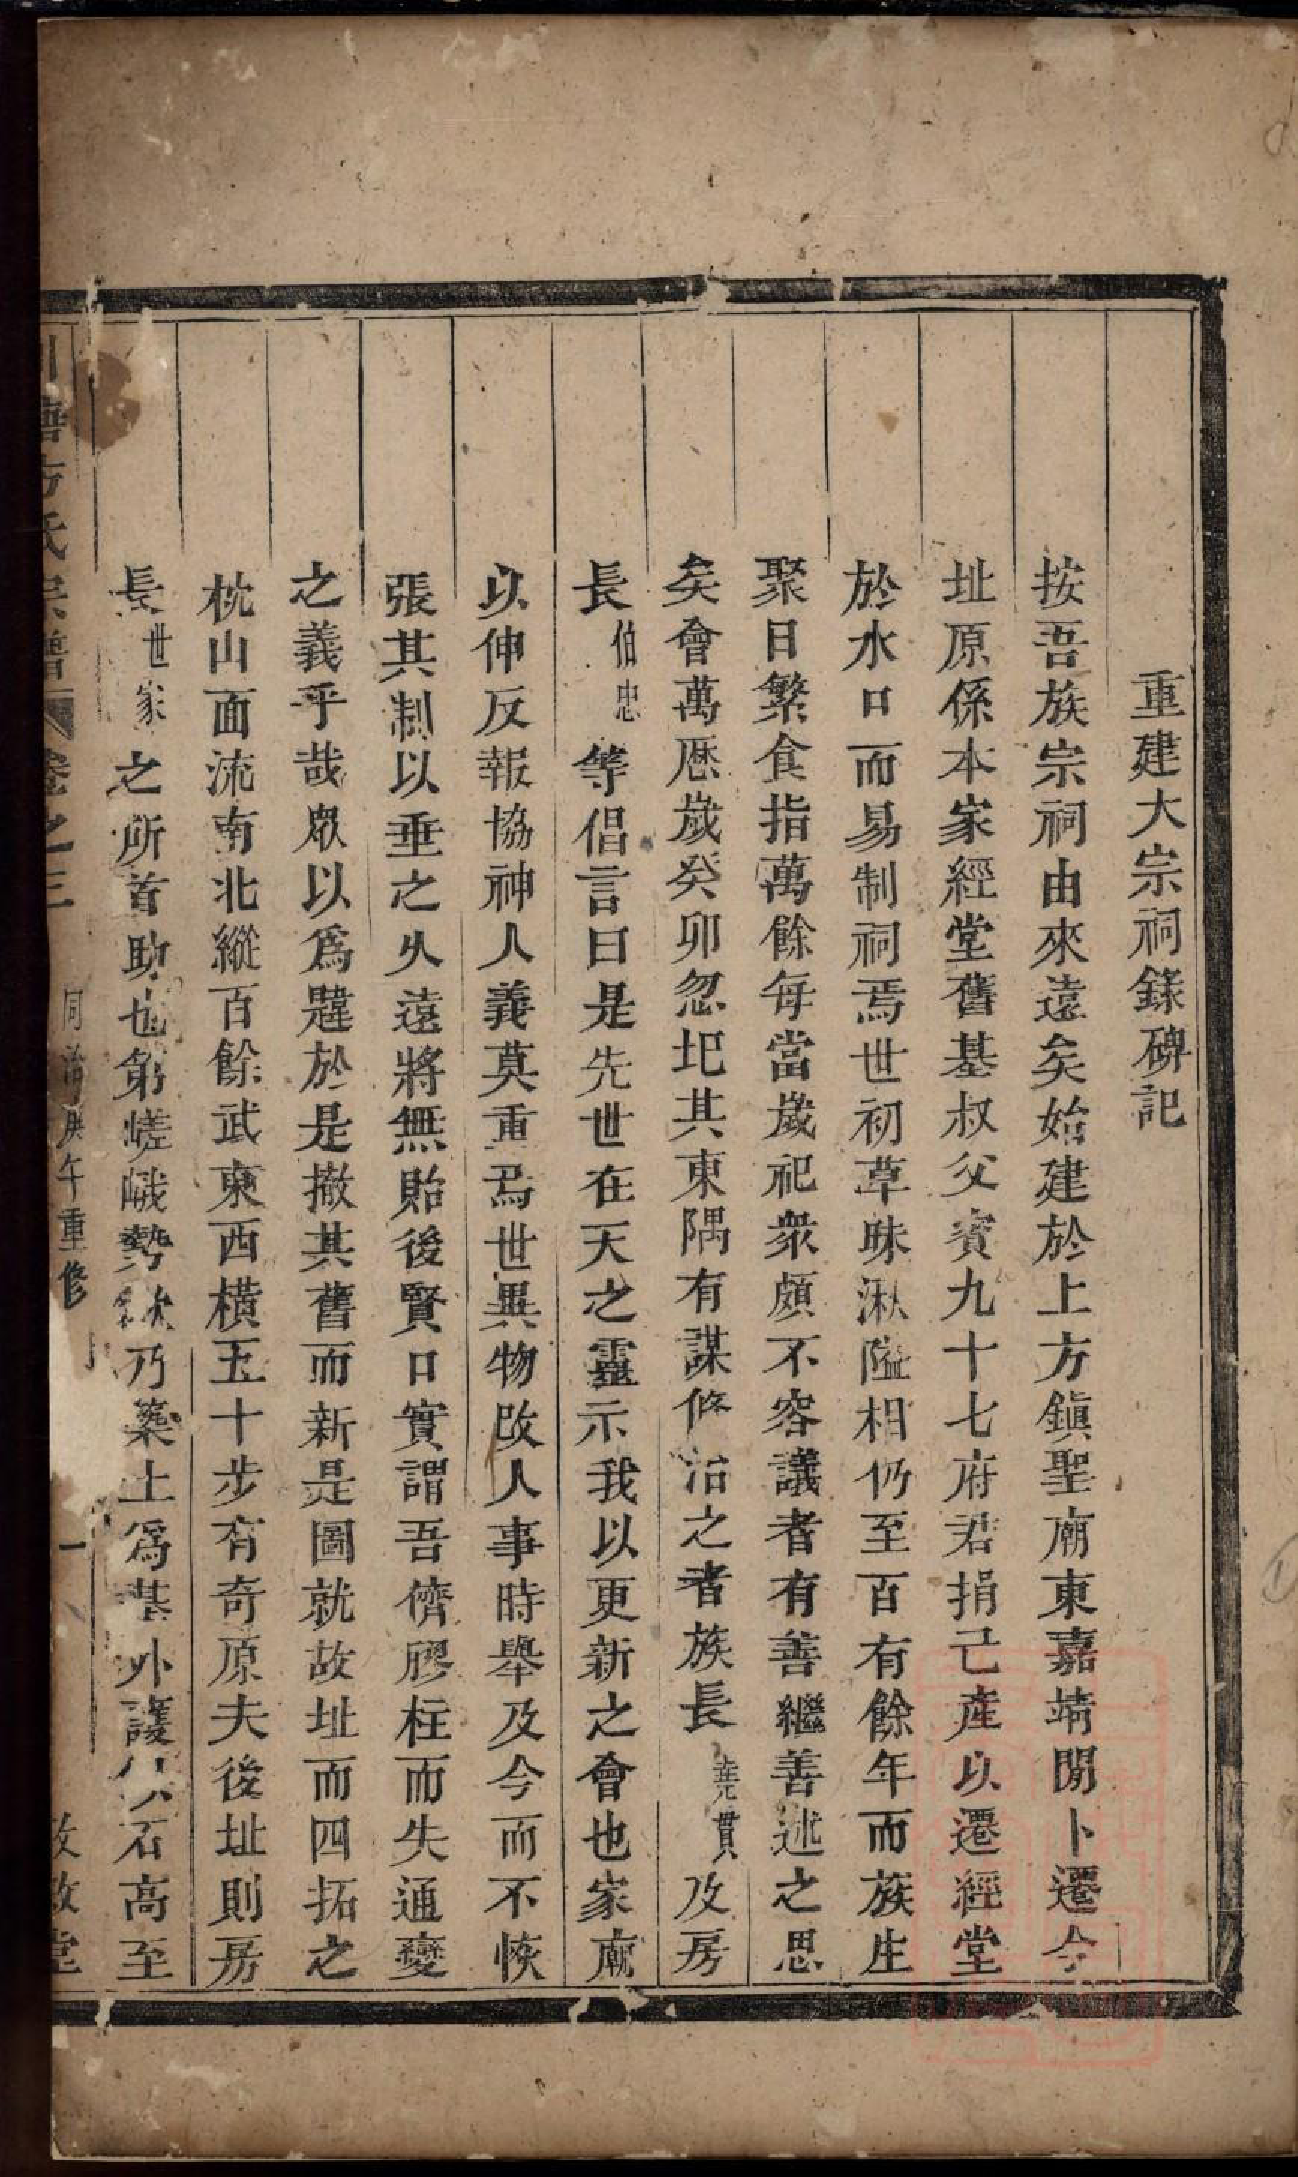 重建大宗祠錄碑記
按吾族宗祠由來遠矣始建於上方鎮聖廟東嘉靖閒卜遷今
址原係本家經堂舊基叔父賓九十七府君捐己產以遷經堂
於水口而易制祠焉世初草昧湫隘相仍至百有餘年而族生
聚日繁食指萬餘每當歲祀衆頗不容議者有善繼善述之思
矣會萬厯歲癸卯忽圮其東隅有謀修治之者族長堯貫及房
長伯忠等倡言曰是先世在天之靈示我以更新之會也家廟
以伸反報協神人義莫重焉世異物改人事時舉及今而不恢
張其制以垂之久遠將無貽後賢口實謂吾儕膠柱而失通變
之義乎哉眾以爲韙於是撤其舊而新是圖就故址而四拓之
枕山面流南北縱百餘武東西橫五十步有奇原夫後址則房
長世家之所首助也第嵯峨勢欹乃築土爲基外護以石高至
方氏宗譜 卷之三 同治庚午重修 敦堂